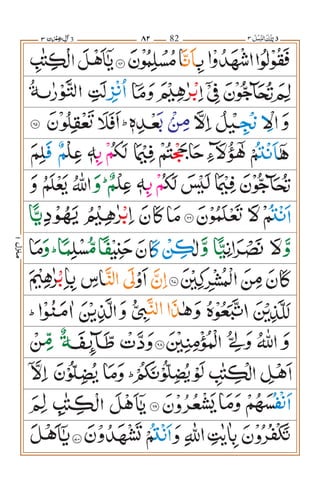 تلك الرسل ٣ 82 ٨٢ اٰل عمرٰن ٣
فَقُوْلُوا اشْهَدُوْا بِاَنَّا مُسْلِمُوْنَ ﴿۶۴﴾ يٰۤاَهْلَ الْكِتٰبِ
لِمَ تُحَآجُّوْنَ فِیْۤ اِبْرٰهِيْمَ وَمَاۤ اُنْزِلَتِ التَّوْرٰىةُ
وَالْاِنْجِيْلُ اِلَّا مِنْۢ بَعْدِهٖ ؕ اَفَلَا تَعْقِلُوْنَ ﴿۶۵﴾
هٰۤاَنْتُمْ هٰۤؤُلَآءِ حَاجَجْتُمْ فِيْمَا لَكُمْ بِهٖ عِلْمٌ فَلِمَ
تُحَآجُّوْنَ فِيْمَا لَيْسَ لَكُمْ بِهٖ عِلْمٌ ؕ وَاللّٰهُ يَعْلَمُ وَ
اَنْتُمْ لَا تَعْلَمُوْنَ ﴿۶۶﴾ مَا كَانَ اِبْرٰهِيْمُ يَهُوْدِيًّا
وَّلَا نَصْرَانِيًّا وَّلٰكِنْ كَانَ حَنِيْفًا مُّسْلِمًا ؕ وَمَا
كَانَ مِنَ الْمُشْرِكِيْنَ ﴿۶۷﴾ اِنَّ اَوْلَى النَّاسِ بِاِبْرٰهِيْمَ
لَلَّذِيْنَ اتَّبَعُوْهُ وَهٰذَا النَّبِیُّ وَالَّذِيْنَ اٰمَنُوْا ؕ
وَاللّٰهُ وَلِیُّ الْمُؤْمِنِيْنَ ﴿۶۸﴾ وَدَّتْ طَّآئِفَةٌ مِّنْ
اَهْلِ الْكِتٰبِ لَوْ يُضِلُّوْنَكُمْ ؕ وَمَا يُضِلُّوْنَ اِلَّاۤ
اَنْفُسَهُمْ وَمَا يَشْعُرُوْنَ ﴿۶۹﴾ يٰۤاَهْلَ الْكِتٰبِ لِمَ
تَكْفُرُوْنَ بِاٰيٰتِ اللّٰهِ وَاَنْتُمْ تَشْهَدُوْنَ ﴿۷۰﴾ يٰۤاَهْلَ
منزل ١